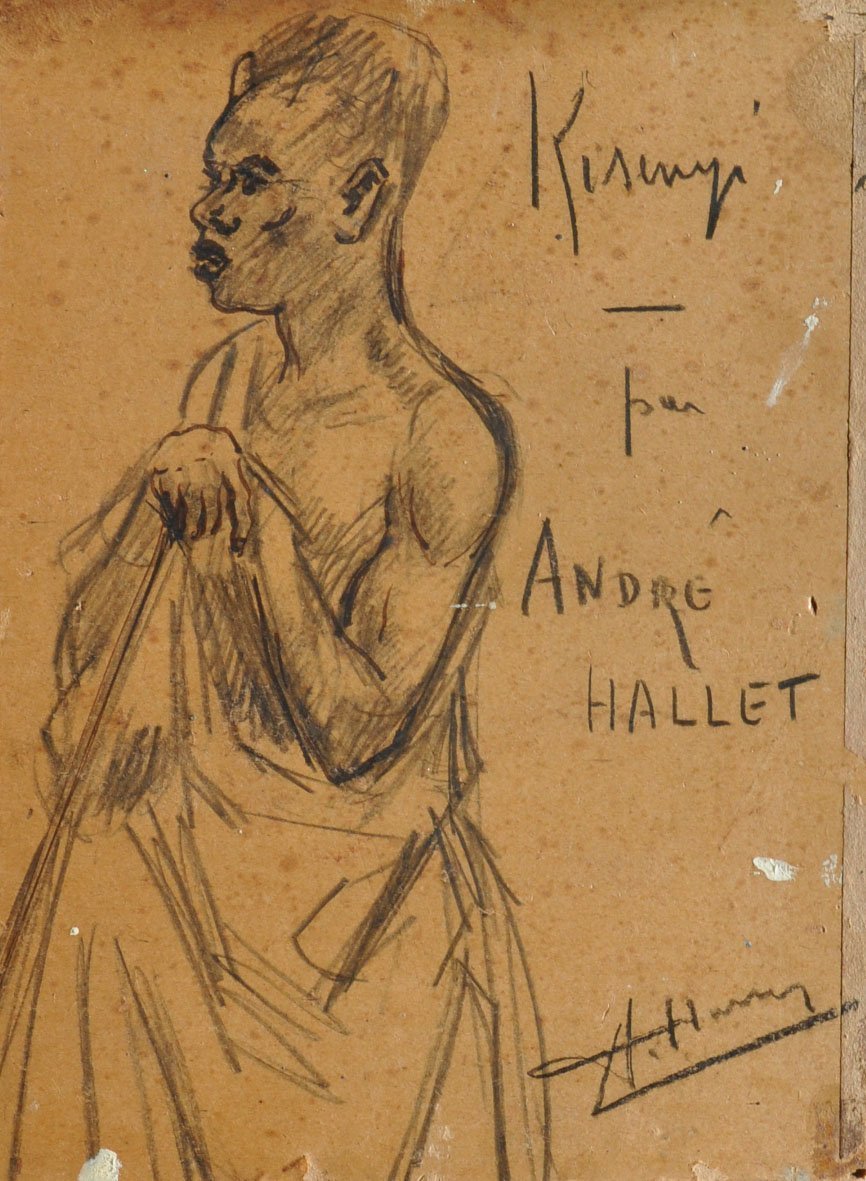 Kisenyi
—
par
ANDRÉ
HALLET
A. Hallet